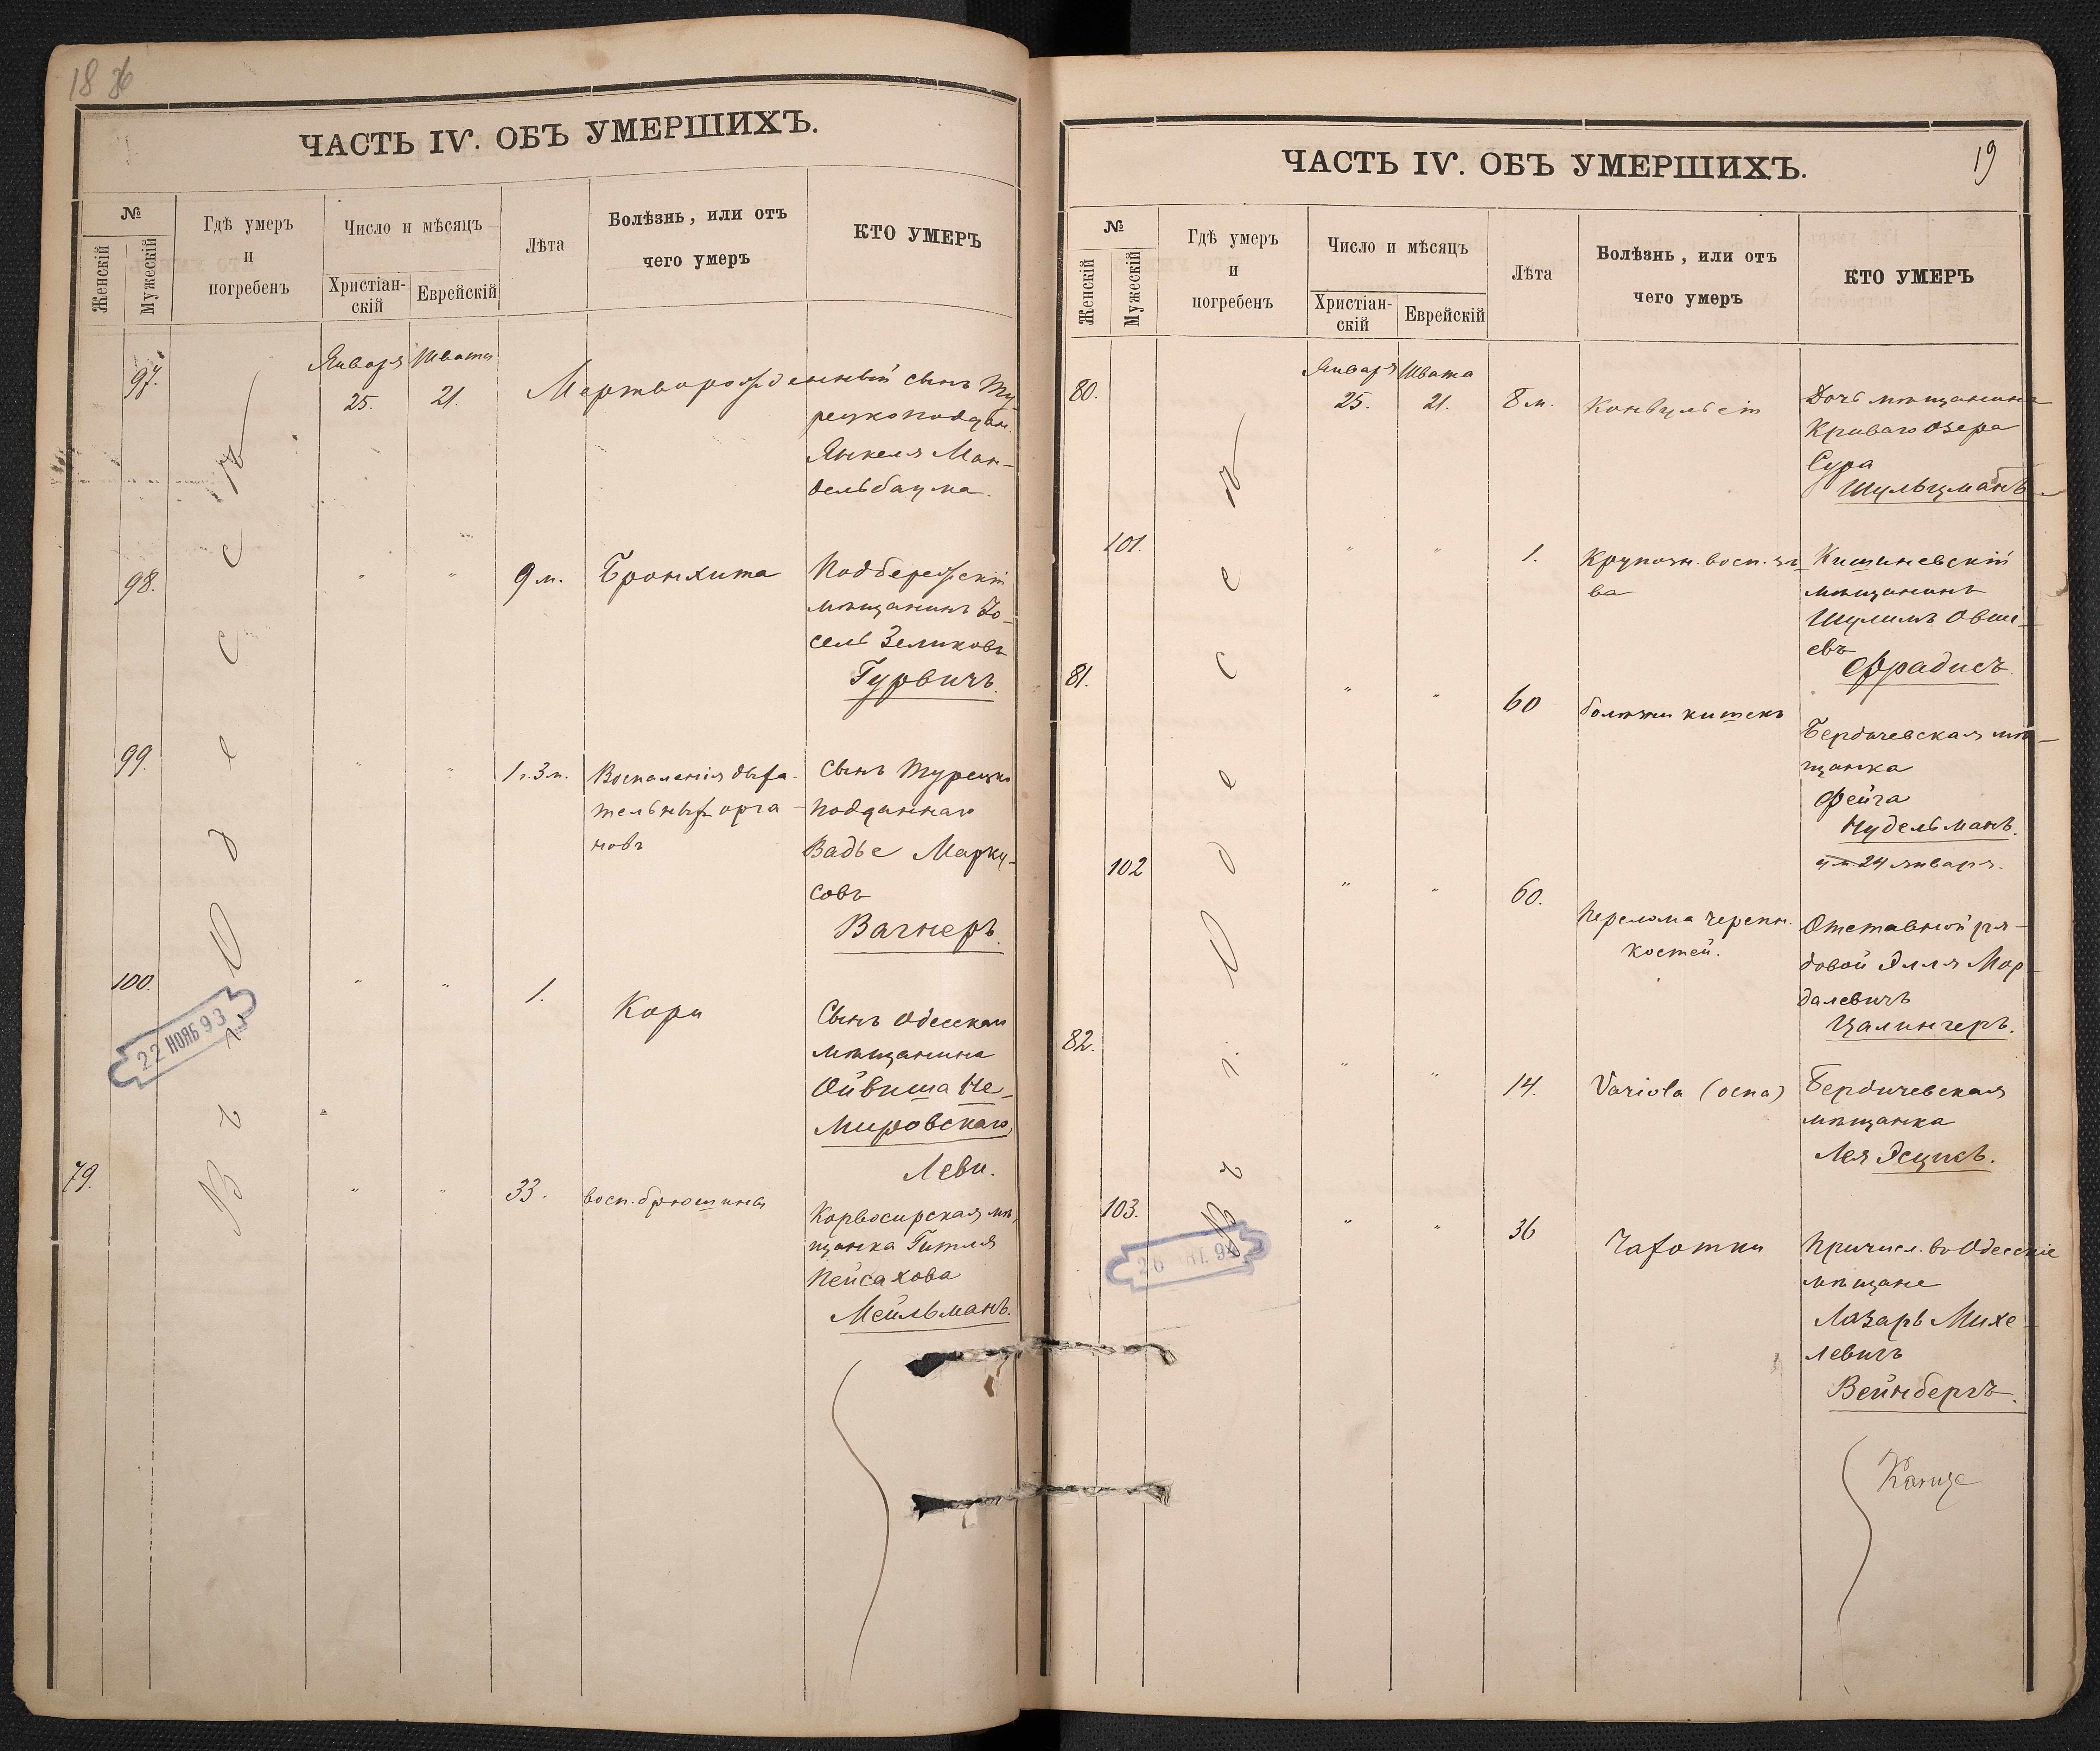 18 36
ЧАСТЬ IV. ОБЪ УМЕРШИХЪ.
№
Женскій
Мужескій
Гдѣ умеръ
и
погребенъ
Число и мѣсяцъ
Христіан-
скій
Еврейскій
Лѣта
Болѣзнь, или отъ
чего умеръ
КТО УМЕРЪ
Въ г. Одессѣ
97.
Января
25.
Швата
21.
Мертворожденный сынъ Ту-
рецкоподдан.
Янкеля Ман-
дельбаума.
98.
"
"
9 м.
Бронхита
Подбережскій
мѣщанинъ Іо-
сель Зеликовъ
Гурвичъ.
99.
"
"
1 г. 3 м.
Воспаленія дыха-
тельныхъ орга-
новъ
Сынъ Турецко
подданнаго
Вадье Марку-
совъ
Вагнеръ.
100.
"
"
1.
Кори
Сынъ Одесскаго
мѣщанина
Ойвиша Не-
мировскаго,
Леви.
22 НОЯБ 93
79.
"
"
33.
восп. брюшины
мѣ-
щанка Гитля
Пейсахова
Мейльманъ.
ЧАСТЬ IV. ОБЪ УМЕРШИХЪ.
19
№
Женскій
Мужескій
Гдѣ умеръ
и
погребенъ
Число и мѣсяцъ
Христіан-
скій
Еврейскій
Лѣта
Болѣзнь, или отъ
чего умеръ
КТО УМЕРЪ
Въ г. Одессѣ
80.
Января
25.
Швата
21.
8 м.
Конвульсіи
Дочь мѣщанина
Криваго Озера
Сура
Шульцманъ
101.
"
"
1.
Крупозн. восп. зѣ-
ва
Кишиневскій
мѣщанинъ
Шулимъ Овши-
евъ
Фрадисъ.
81.
"
"
60
болѣзни кишекъ
Бердичевская мѣ-
щанка
Фейга
Нудельманъ.
ум 24 января.
102
"
"
60.
Перелома черепн.
костей.
Отставной ря-
довой Элля Мор-
далевичъ
Цалингеръ.
82.
"
"
14.
Variola (оспа)
Бердичевская
мѣщанка
Лея Эсцисъ.
103.
"
"
36
Чахотки
Причисл. въ Одесскіе
мѣщане
Лазарь Михе-
левичъ
Вейнбергъ.